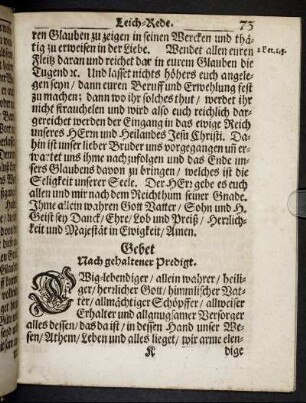 Leich-Rede. 73
ren Glauben zu zeigen in seinen Wercken und thä-
tig zu erweisen in der Liebe. Wendet allen euren
Fleiß daran und reichet dar in eurem Glauben die
Tugend ꝛc. Und lasset nichts höhers euch angele-
gen seyn / dann euren Beruff und Erwehlung fest
zu machen: dann wo ihr solches thut / werdet ihr
nicht straucheln und wird also euch reichlich dar-
gereichet werden der Eingang in das ewige Reich
unseres HErrn und Heilandes Jesu Christi. Da-
hin ist unser lieber Bruder uns vorgegangen uñ er-
wartet uns ihme nachzufolgen und das Ende un-
sers Glaubens davon zu bringen / welches ist die
Seligkeit unserer Seele. Der HErr gebe es euch
allen und mir nach dem Reichthum seiner Gnade.
Ihme allein wahren Gott Vatter / Sohn und H.
Geist sey Danck / Ehre / Lob und Preiß / Herrlich-
keit und Majestät in Ewigkeit / Amen.
Gebet
Nach gehaltener Predigt.
EWig-lebendiger / allein wahrer / heili-
ger / herrlicher Gott / himmlischer Vat-
ter / allmächtiger Schöpffer / allweiser
Erhalter und allgnugsamer Versorger
alles dessen / das da ist / in dessen Hand unser We-
sen / Athem / Leben und alles lieget / wir arme elen-
K dige